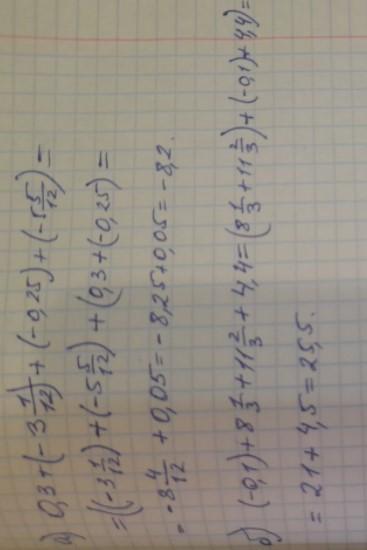 а) 0,3+(-3 1/12)+(-0,25)+(-5 5/12)=
=((-3 1/12)+(-5 5/12)+(0,3+(-0,25)=
= -8 4/12 +0,05=-8,25+0,05=-8,2.
б) (-0,1)+8 1/3+11 2/3+4,4=(8 1/3+11 2/3)+(-0,1)+4,4)=
= 21+4,5=25,5.